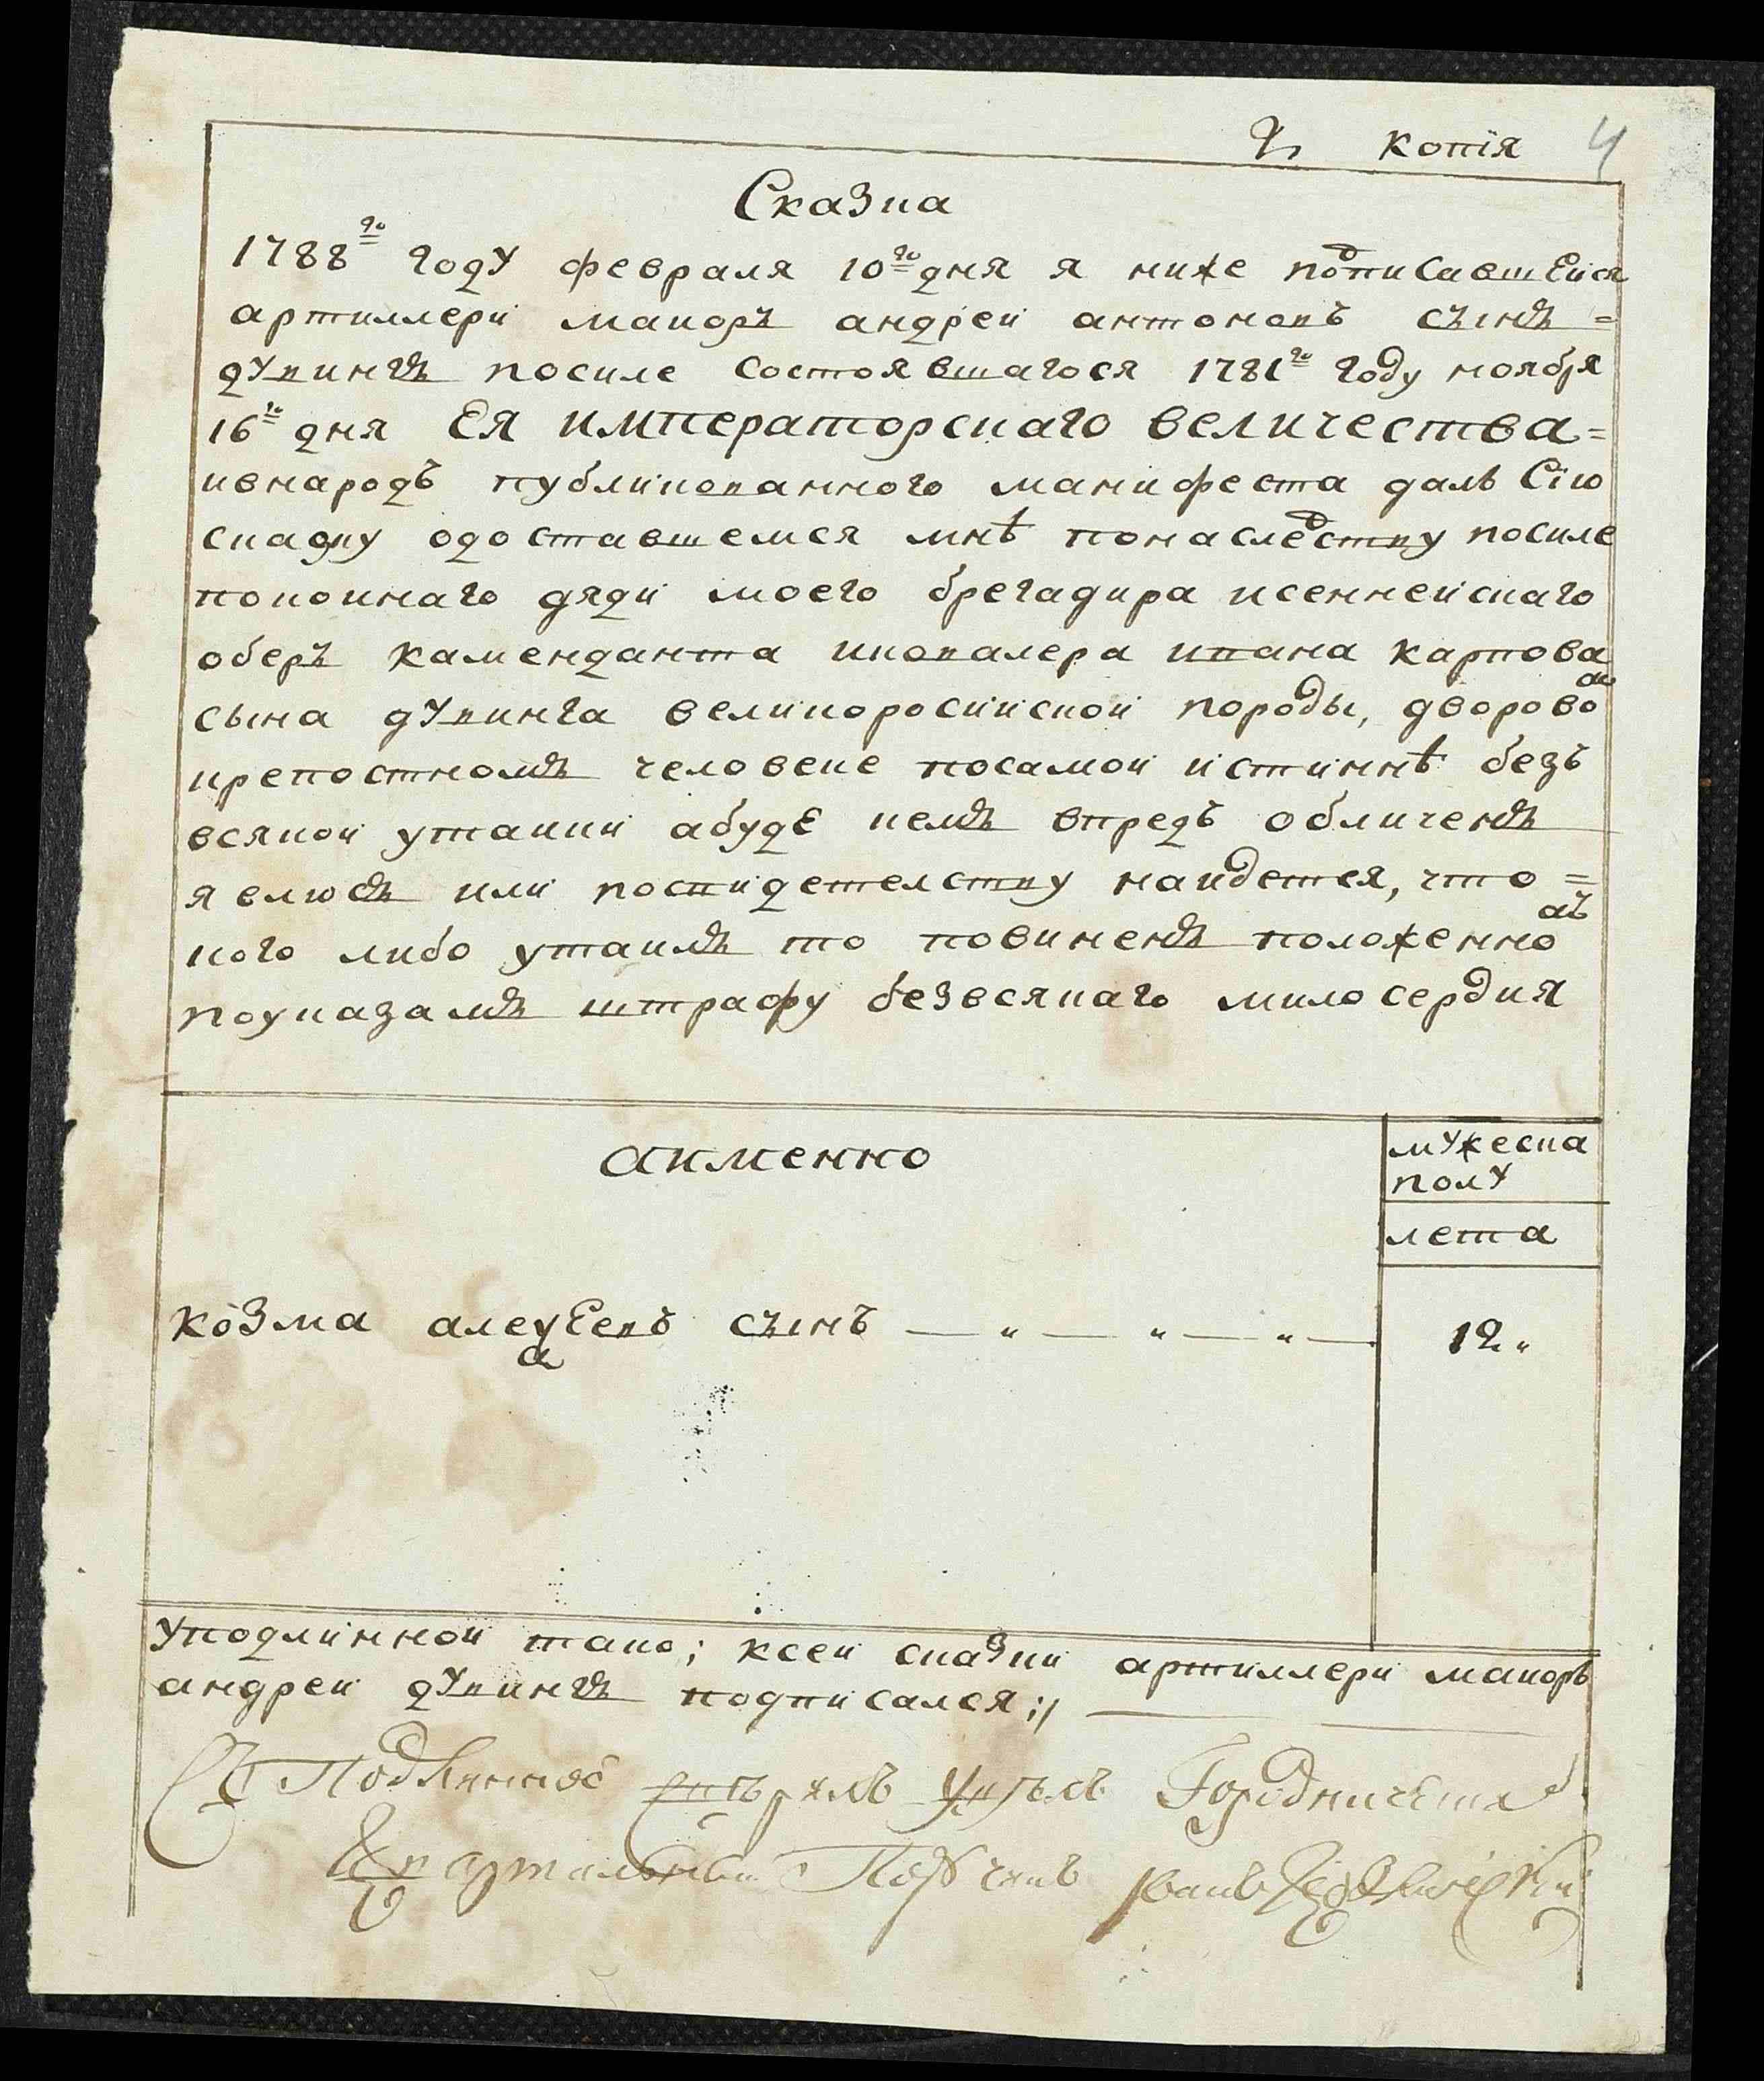 копїя 4
Сказка
1788го году февраля 10го дня я ниже подписавшейся
артиллери маиоръ андреи антоновъ сынъ =
дукингъ посиле состоявшагося 1781го году ноября
16го дня Ея императорскаго величества =
ивнародъ публикованного манифеста далъ Сїю
скаску одоставшемся мнѣ понаследству посиле
покоинаго дяди моего брегадира исеннеискаго
оберъ каменданта икавалера ивана карпова
сына дукинга великоросииской породы, дворовом
крепостномъ человеке посамои истиннѣ безъ
всякои утаики абуде кемъ впредъ обличенъ
явлюсъ или посвидетелству наидется, что =
кого либо утаилъ то повиненъ положенному
поуказамъ штрафу безвсякаго милосердия
аименно
мужеска
полу
лета
козма алеѯеевъ сынъ — „ — „ — „ — 12 „
Уподлинной тако; ксеи скаски артиллери маиоръ
андреи дукингъ подписался;//
Съ Подлинной